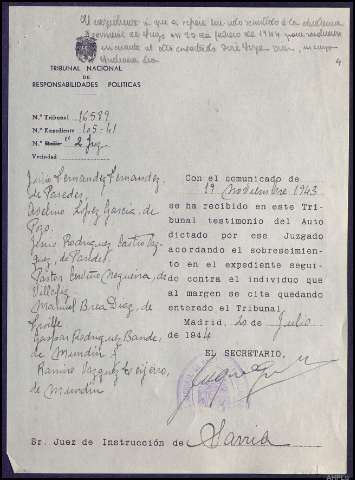 El expediente a que se refiere ha sido remitido a la Audiencia
Provincial de Lugo en 22 de febrero de 1944 para
en cuanto al otro encartado José
Audiencia
4
TRIBUNAL NACIONAL
DE
RESPONSABILIDADES POLITICAS
N.º Tribunal 16589
N.º Expediente 105-41
N.º " 2 Lugo
Vecindad
Julio Fernandez Fernandez
de Paredes
Avelino López Garcia, de
Pozo.
Jesus Rodriguez Castro Vaz-
quez, de Paredes
Pastor Nogueira, de
Manuel Brea Diaz, de
Gaspar Rodriguez Bande,
de Mundin y
Ramiro Vazquez
de Mundin
Con el comunicado de
19 noviembre 1943
se ha recibido en este Tri-
bunal testimonio del Auto
dictado por ese Juzgado
acordando el sobreseimien-
to en el expediente segui-
do contra el individuo que
al margen se cita quedando
enterado el Tribunal.
Madrid, 20 de Julio
de 1944
EL SECRETARIO,
Sr. Juez de Instrucción de Sarria
AHPLu